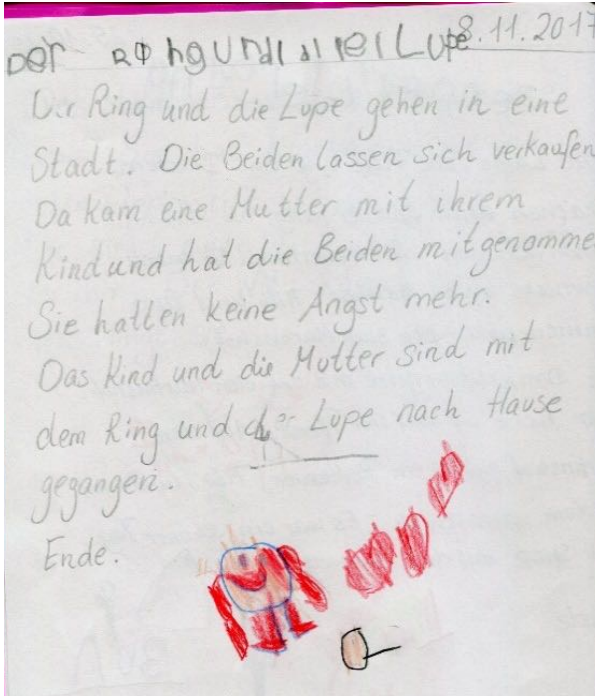 Der Ring und die Lupe
8.11.2017
Der Ring und die Lupe gehen in eine
Stadt. Die Beiden lassen sich verkaufen
Da kam eine Mutter mit ihrem
Kind und hat die Beiden mitgenomme
Sie hatten keine Angst mehr.
Das Kind und die Mutter sind mit
dem Ring und der Lupe nach Hause
gegangen.
Ende.